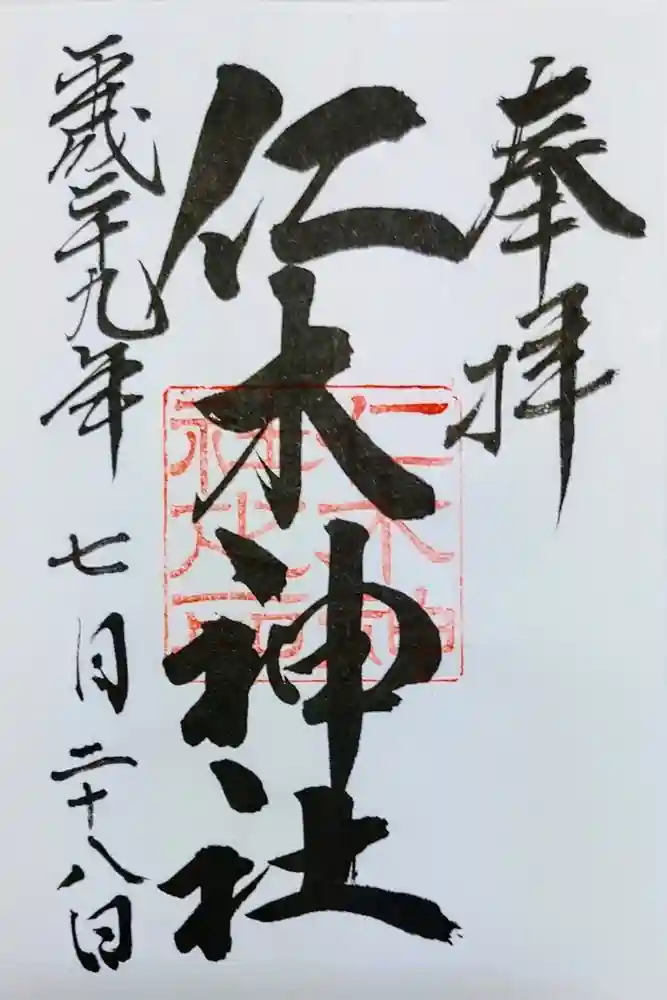 奉拝
仁木神社
平成二十九年七月二十八日
仁木神
社之印